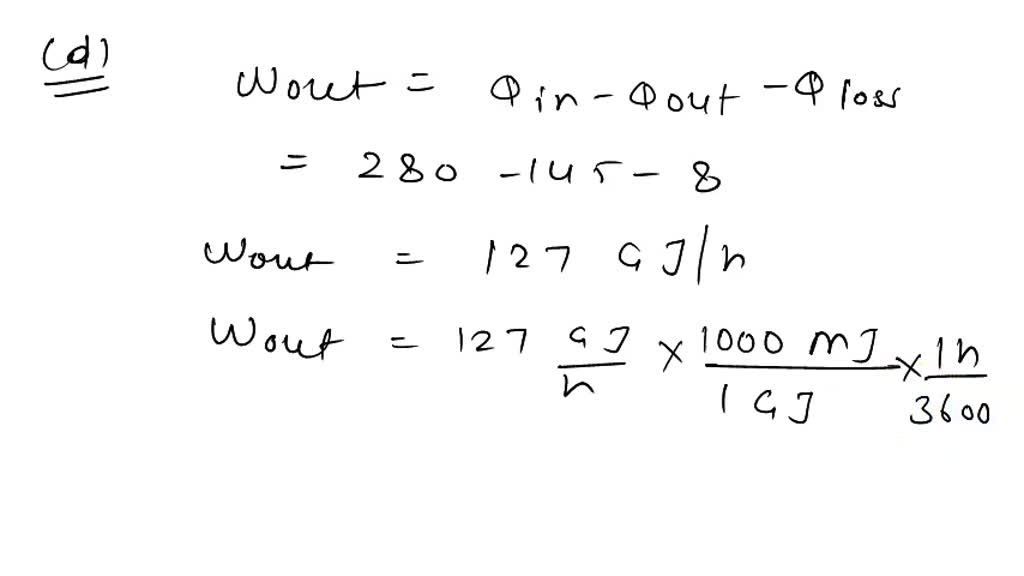 (d)
Wout = Qin - Qout - Qloss
= 280 - 145 - 8
Wout = 127 GJ/h
Wout = 127 GJ/h × 1000 MJ/1 GJ × 1h/3600